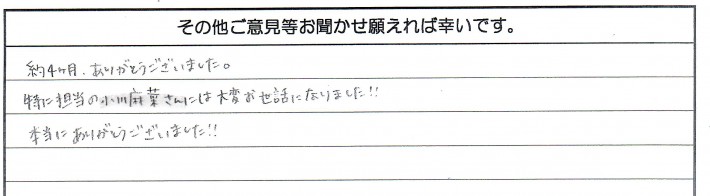 その他ご意見等お聞かせ願えれば幸いです。
約4ヶ月、ありがとうございました。
特に担当の小川麻葉さんには大変お世話になりました!!
本当にありがとうございました!!